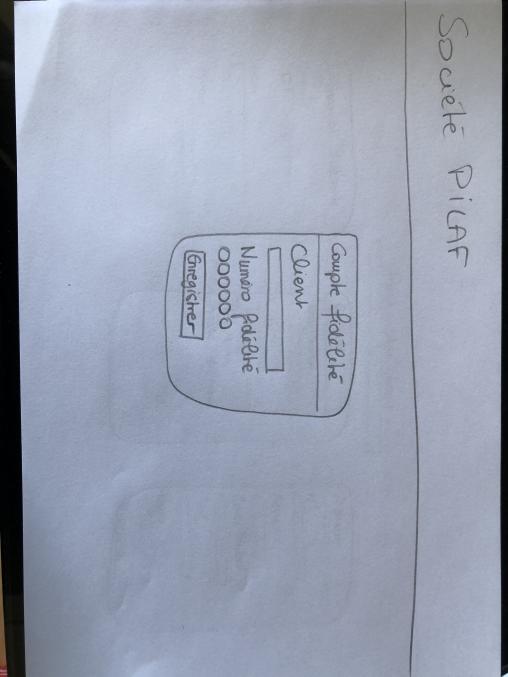 Société PILAF
Compte fidélité
Client
Numéro fidélité
000000
Enregistrer